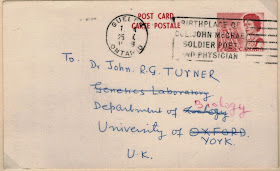 GUELPH
ONTARIO
POST CARD
CARTE POSTALE
BIRTHPLACE OF
COL. JOHN McCRAE
SOLDIER POET
AND PHYSICIAN
To Dr John. R.G. TURNER
Genetics Laboratory
Department of Zoology Biology
University of OXFORD,
YORK.
U.K.